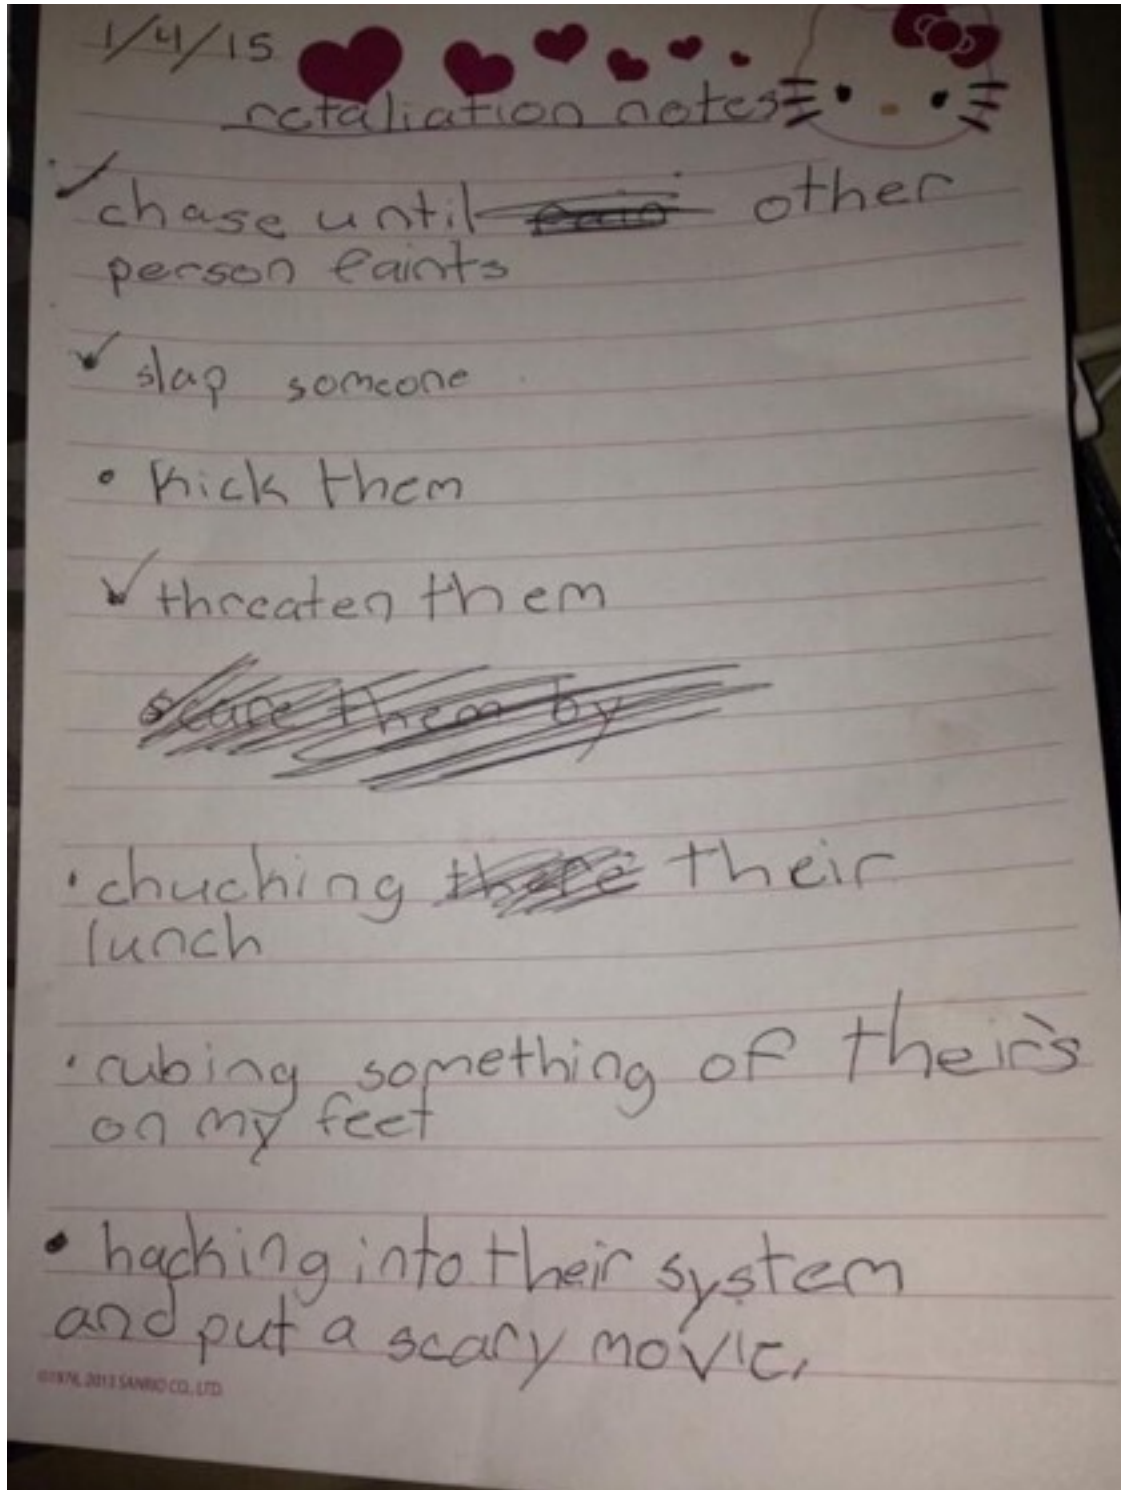 1/4/15
retaliation notes
chase until other
person faints
slap someone
• kick them
threaten them
scare them by
• chucking there their
lunch
• rubing something of their's
on my feet
• hacking into their system
and put a scary movie.
©1976, 2013 SANRIO CO., LTD.